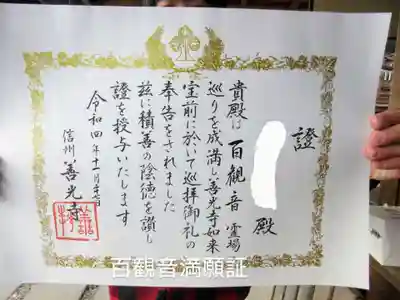 證
殿
貴殿は百観音霊場
巡りを成満し善光寺如来
宝前に於いて巡拝御礼の
奉告をされました
茲に積善の陰徳を讃し
證を授与いたします
令和四年十一月
信州 善光寺
百観音満願証